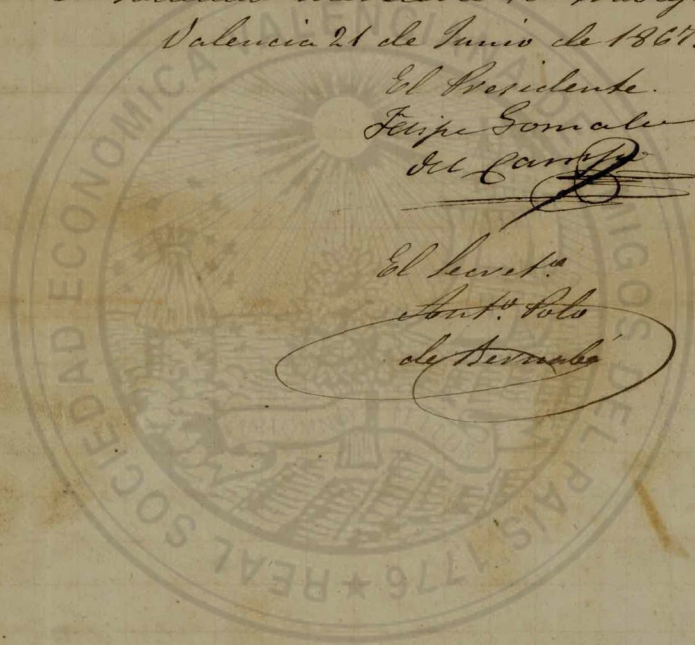 Valencia 21 de Junio de 1867.
El Presidente.
Felipe Gonzalez
del Campo
El Secret.º
Ant.º Polo
de Bernabé
REAL SOCIEDAD ECONOMICA VALENCIANA DE AMIGOS DEL PAIS 1776